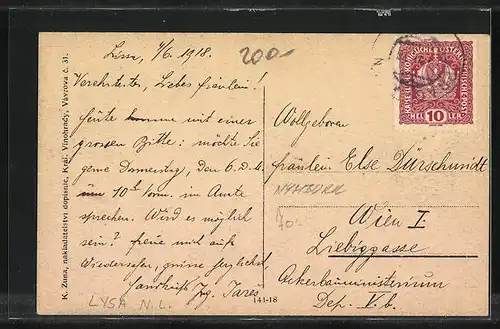 Lissa, 4/6 1918.
200.-
Verehrtester, Liebes Fräulein!
Heute komme mit einer
grossen Bitte: möchte Sie
gerne Donnerstag, den 6. d. M.
um 10h vorm. im Amte
sprechen. Wird es möglich
sein? Freue mich aufs
Wiedersehen, grüsse herzlichst
LYSA N.L.
K. Zuna, nakladatelství dopisnic, Král. Vinohrady, Vávrova č. 31.
141-18
KAISERLICHE KÖNIGLICHE ÖSTERREICHISCHE POST
HEL 10 LER
Wohlgeboren
Fräulein Else Dürschmidt
NYMBURK
70.-
Wien I.
Liebiggasse
Ackerbauministerium
Dep. V.b.